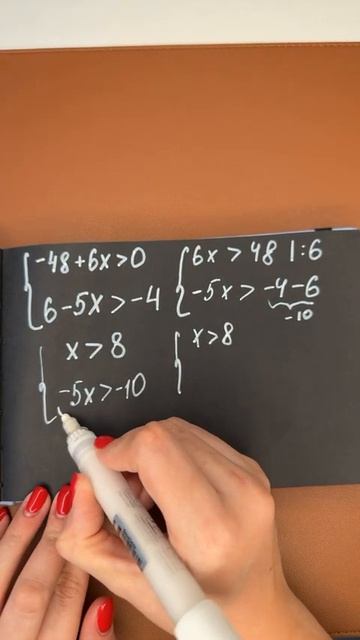 -48+6x>0
6-5x>-4
6x>48 |:6
-5x>-4-6
-10
x>8
-5x>-10
x>8